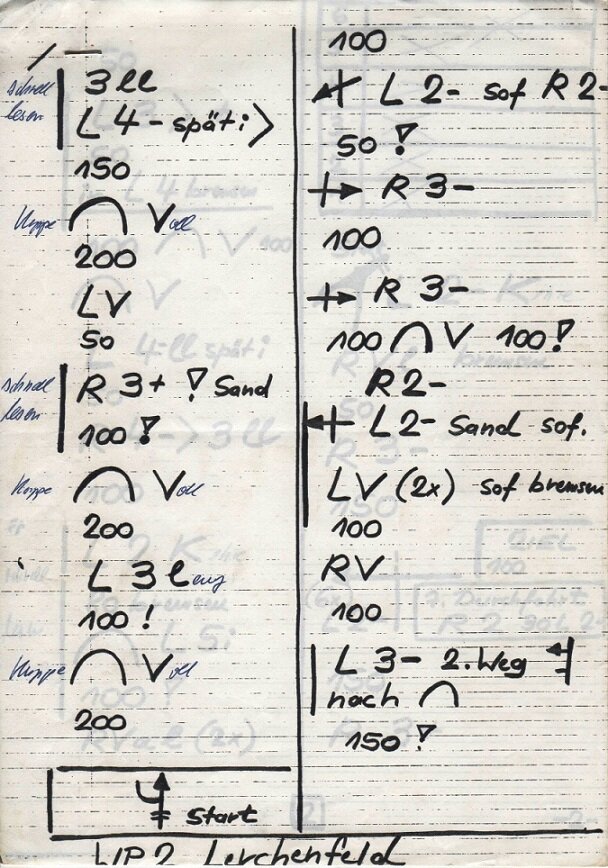 schnell 3 ll
lesen L 4- späti >
150
Kuppe ⌒ Voll
200
LV
50
schnell R 3+ ! Sand
lesen 100 !
Kuppe ⌒ Voll
200
L 3 l eng
100 !
Kuppe ⌒ Voll
200
Start
100
L 2- sof R 2-
50 !
R 3-
100
R 3-
100 ⌒ V 100 !
R 2-
L 2- Sand sof.
LV (2x) sof bremsen
100
RV
100
L 3- 2. Weg
nach ⌒
150 !
WP 2 Lerchenfeld